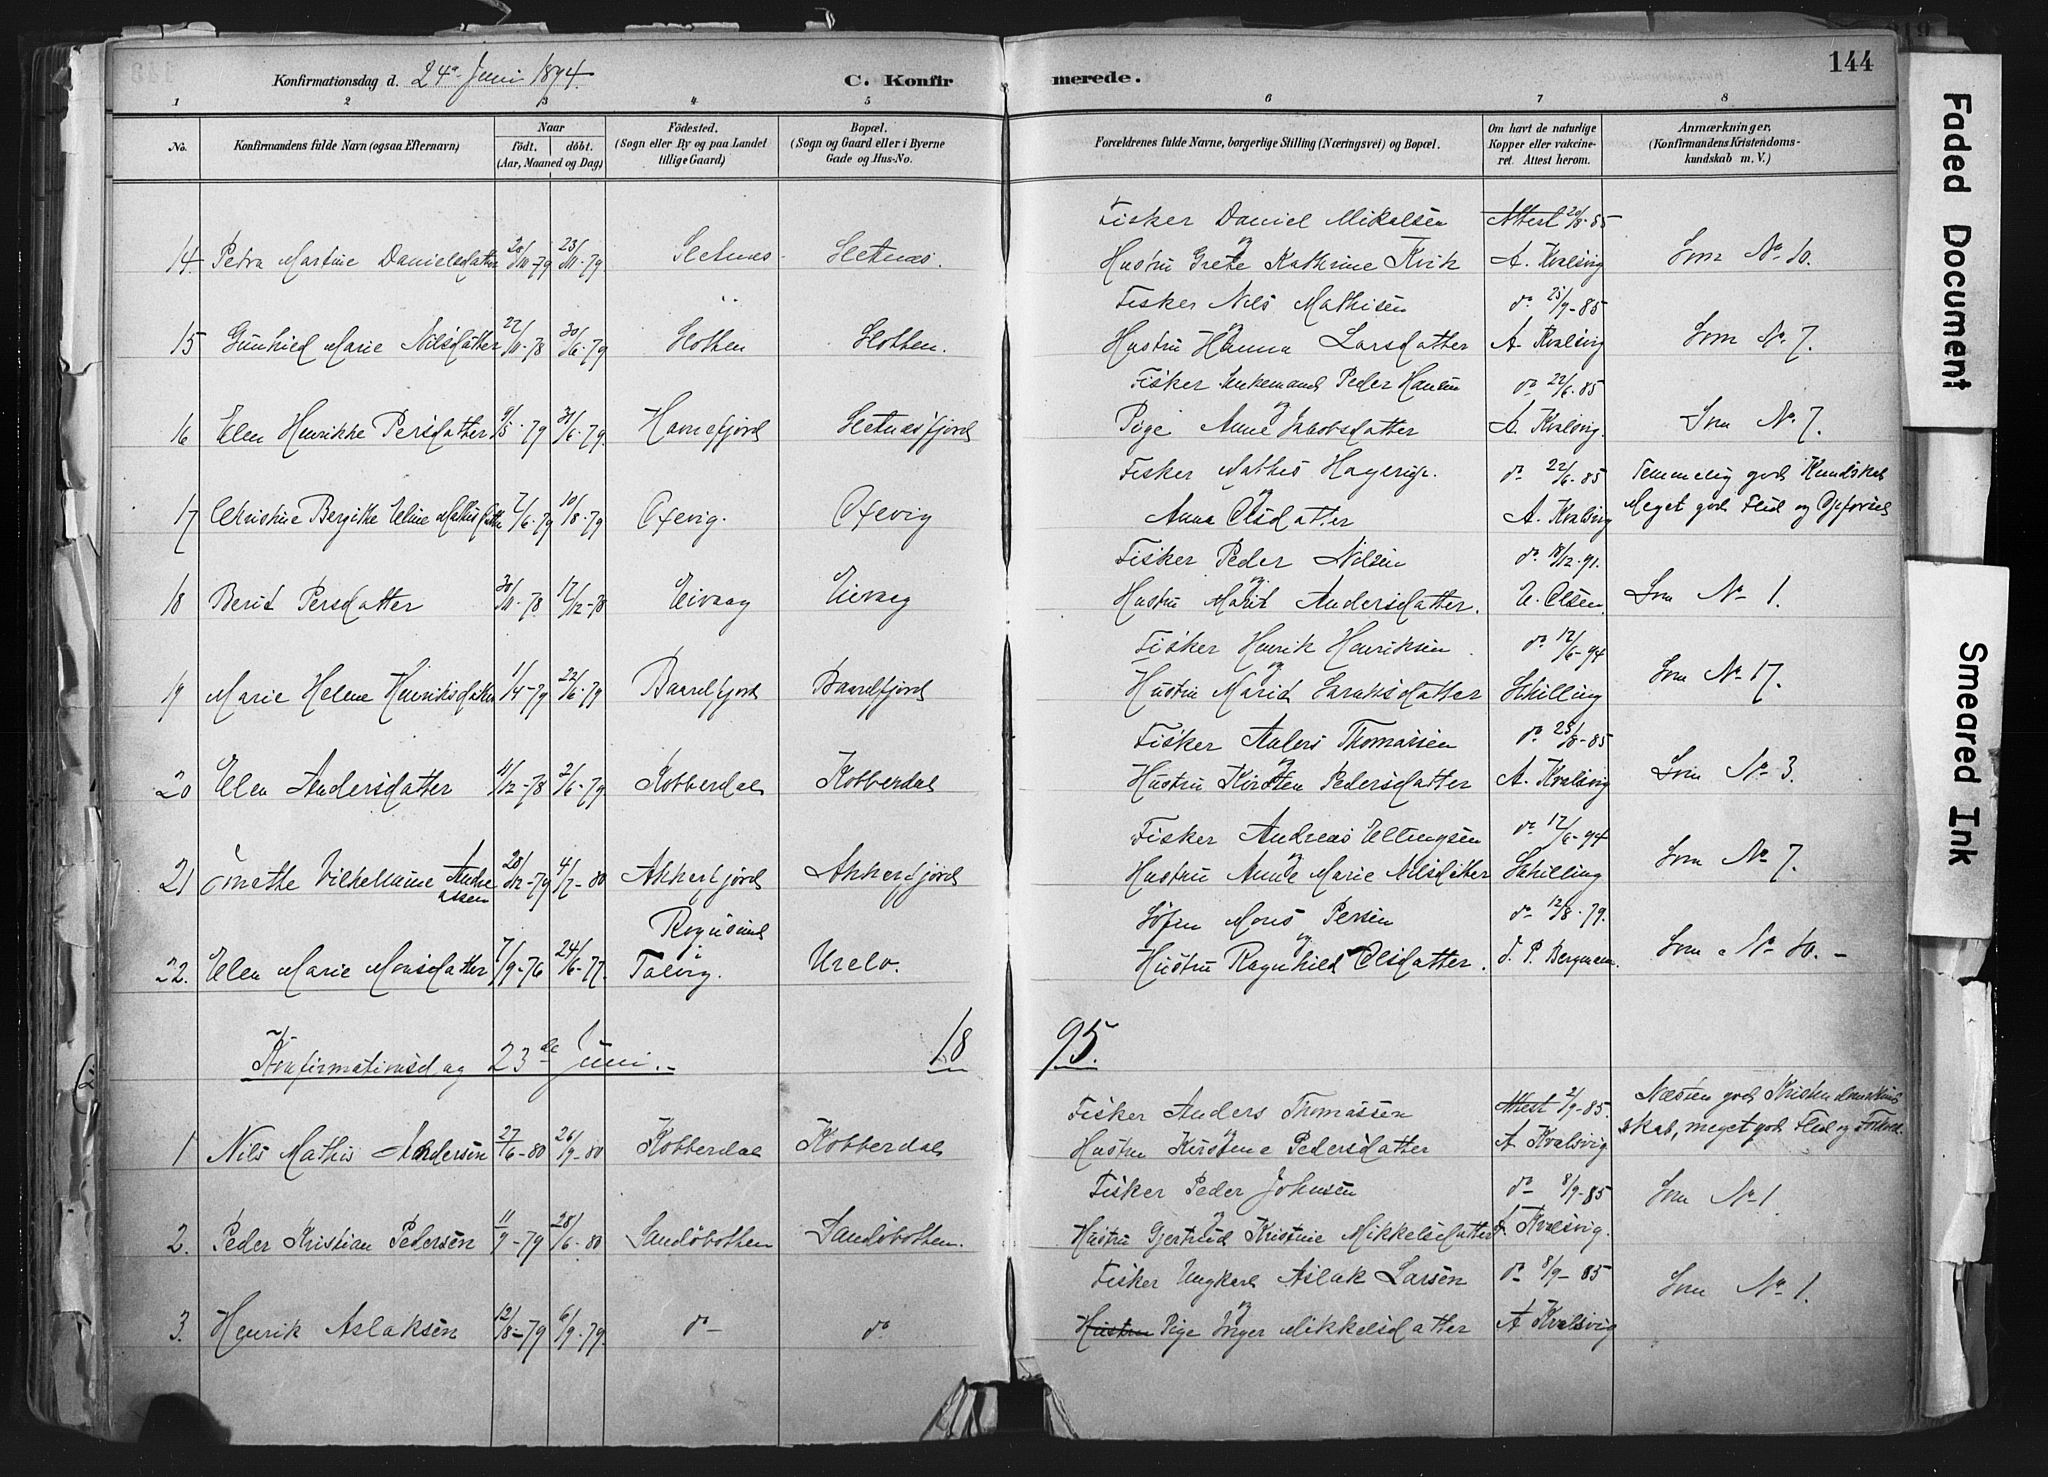 144
Konfirmationsdag d. 24de Juni 1894.
C. Konfirmerede.
1 2 3 4 5 6 7 8
No.
Konfirmandens fulde Navn (ogsaa Efternavn)
Naar
födt. döbt.
(Aar, Maaned og Dag)
Födested.
(Sogn eller By og paa Landet
tillige Gaard)
Bopæl.
(Sogn og Gaard eller i Byerne
Gade og Hus-No.
Forældrenes fulde Navne, borgerlige Stilling (Næringsvei) og Bopæl.
Om havt de naturlige
Kopper eller vakcine-
ret. Attest herom.
Anmærkninger.
(Konfirmandens Kristendoms-
kundskab m. V.)
Fisker Daniel Mikalsen Attest 20/8-85
14. Petra Martine Danielsdatter 20/10-79 23/11-79. Sletnæs. Sletnæs. og Hustru Grete Kathrine Kvik A. Kvalsvig Som No 10.
Fisker Nils Mathisen do 25/9-85
15 Gunhild Marie Nilsdatter 22/11-78 30/6-79 Slotten Slotten. og Hustru Hanna Larsdatter A. Kvalsvig Som No 7.
Fisker Enkemand Peder Hansen do 22/6-85
16 Elen Henrikke Persdatter 9/5-79 30/6-79. Havnefjord Sletnæsfjord og Pige Anne Jakobsdatter A. Kvalsvig. Som No 7.
Fisker Mathis Hagerup. do 22/6-85 Temmelig god Kundskab
17 Christine Bergitte Eline Mathisdatter 7/6-79 10/8-79 Oxevig. Oxevig og Anna Olsdatter A. Kvalsvig Meget god Flid og Opførsel
Fisker Peder Nilsen do 18/12-91.
18 Berit Persdatter 30/11-78 17/12-78 Eivaag Eivaag og Hustru Marit Andersdatter. U. Olsen. Som No 1.
Fisker Henrik Henriksen do 12/6-94
19 Marie Helene Henriksdatter 1/4-79 22/6-79 Baarefjord Baarefjord og Hustru Marit Larsdatter Schilling Som No 17.
Fisker Anders Thomassen do 25/8-85
20 Elen Andersdatter 11/12-78 2/6-79 Kobberdal Kobberdal og Hustru Kirsten Pedersdatter A. Kvalsvig Som No 3.
Fisker Andreas Ellingsen do 12/6-94
21 Omethe Vilhelmine Andreassen 20/12-79 4/7-80 Akkerfjord Akkerfjord og Hustru Anne Marie Nilsdatter Schilling Som No 7.
Rognsund Løfin Mons Persen do 12/8-79.
22. Elen Marie Monsdatter 7/9-76 24/6-77. Talvig. Urelv. og Hustru Ragnhild Olsdatter. J. P. Bergmann. Som No 10.-
Konfirmationsdag 23de Juni. 1895.
Fisker Anders Thomassen Attest 2/9-85. Næsten god Kristendomskund
1 Nils Mathis Andersen 27/6-80 26/9-80 Kobberdal Kobberdal og Hustru Kirstine Pedersdatter A Kvalsvig skab, meget god Flid og Forhold.
Fisker Peder Johnsen do 8/9-85 Som No 1.
2. Peder Kristian Pedersen 11/9-79 28/6-80 Sandöbotten Sandöbotten. og Hustru Gjertrud Kristine Mikkelsdatter A. Kvalsvig.
Fisker Ungkarl Aslak Larsen do 8/9-85 Som No 1.
3. Henrik Aslaksen 12/8-79 6/9-79. do do og Hustru Pige Inger Mikkelsdatter A Kvalsvig
Faded Document
Smeared Ink